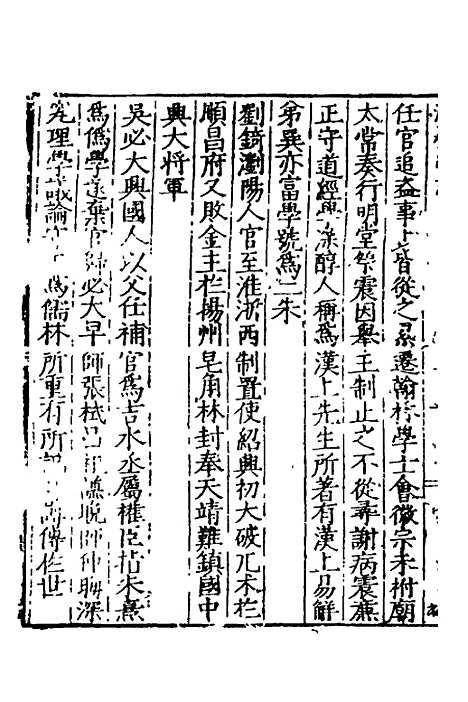 任官追盗事十皆從之累遷翰林學士會徽宗未祔廟
太常奏行明堂祭震因舉王制止之不從尋謝病震亷
正守道經學深醇人稱爲漢上先生所著有漢上易解
弟巽亦富學號爲二朱
劉錡瀏陽人官至淮浙西制置使紹興初大破兀术於
順昌府又敗金主於揚州皂角林封奉天靖難鎮國中
興大將軍
吳必大興國人以父任補官爲吉水丞屬權臣指朱熹
爲僞學遂棄官歸必大早師張栻呂 謙晚師仲晦深
究理學 論 爲儒林所重有所 傳於世